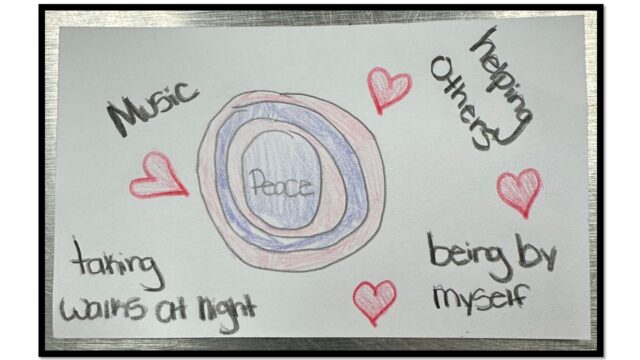 Music
helping
others
Peace
taking
walks at night
being by
myself